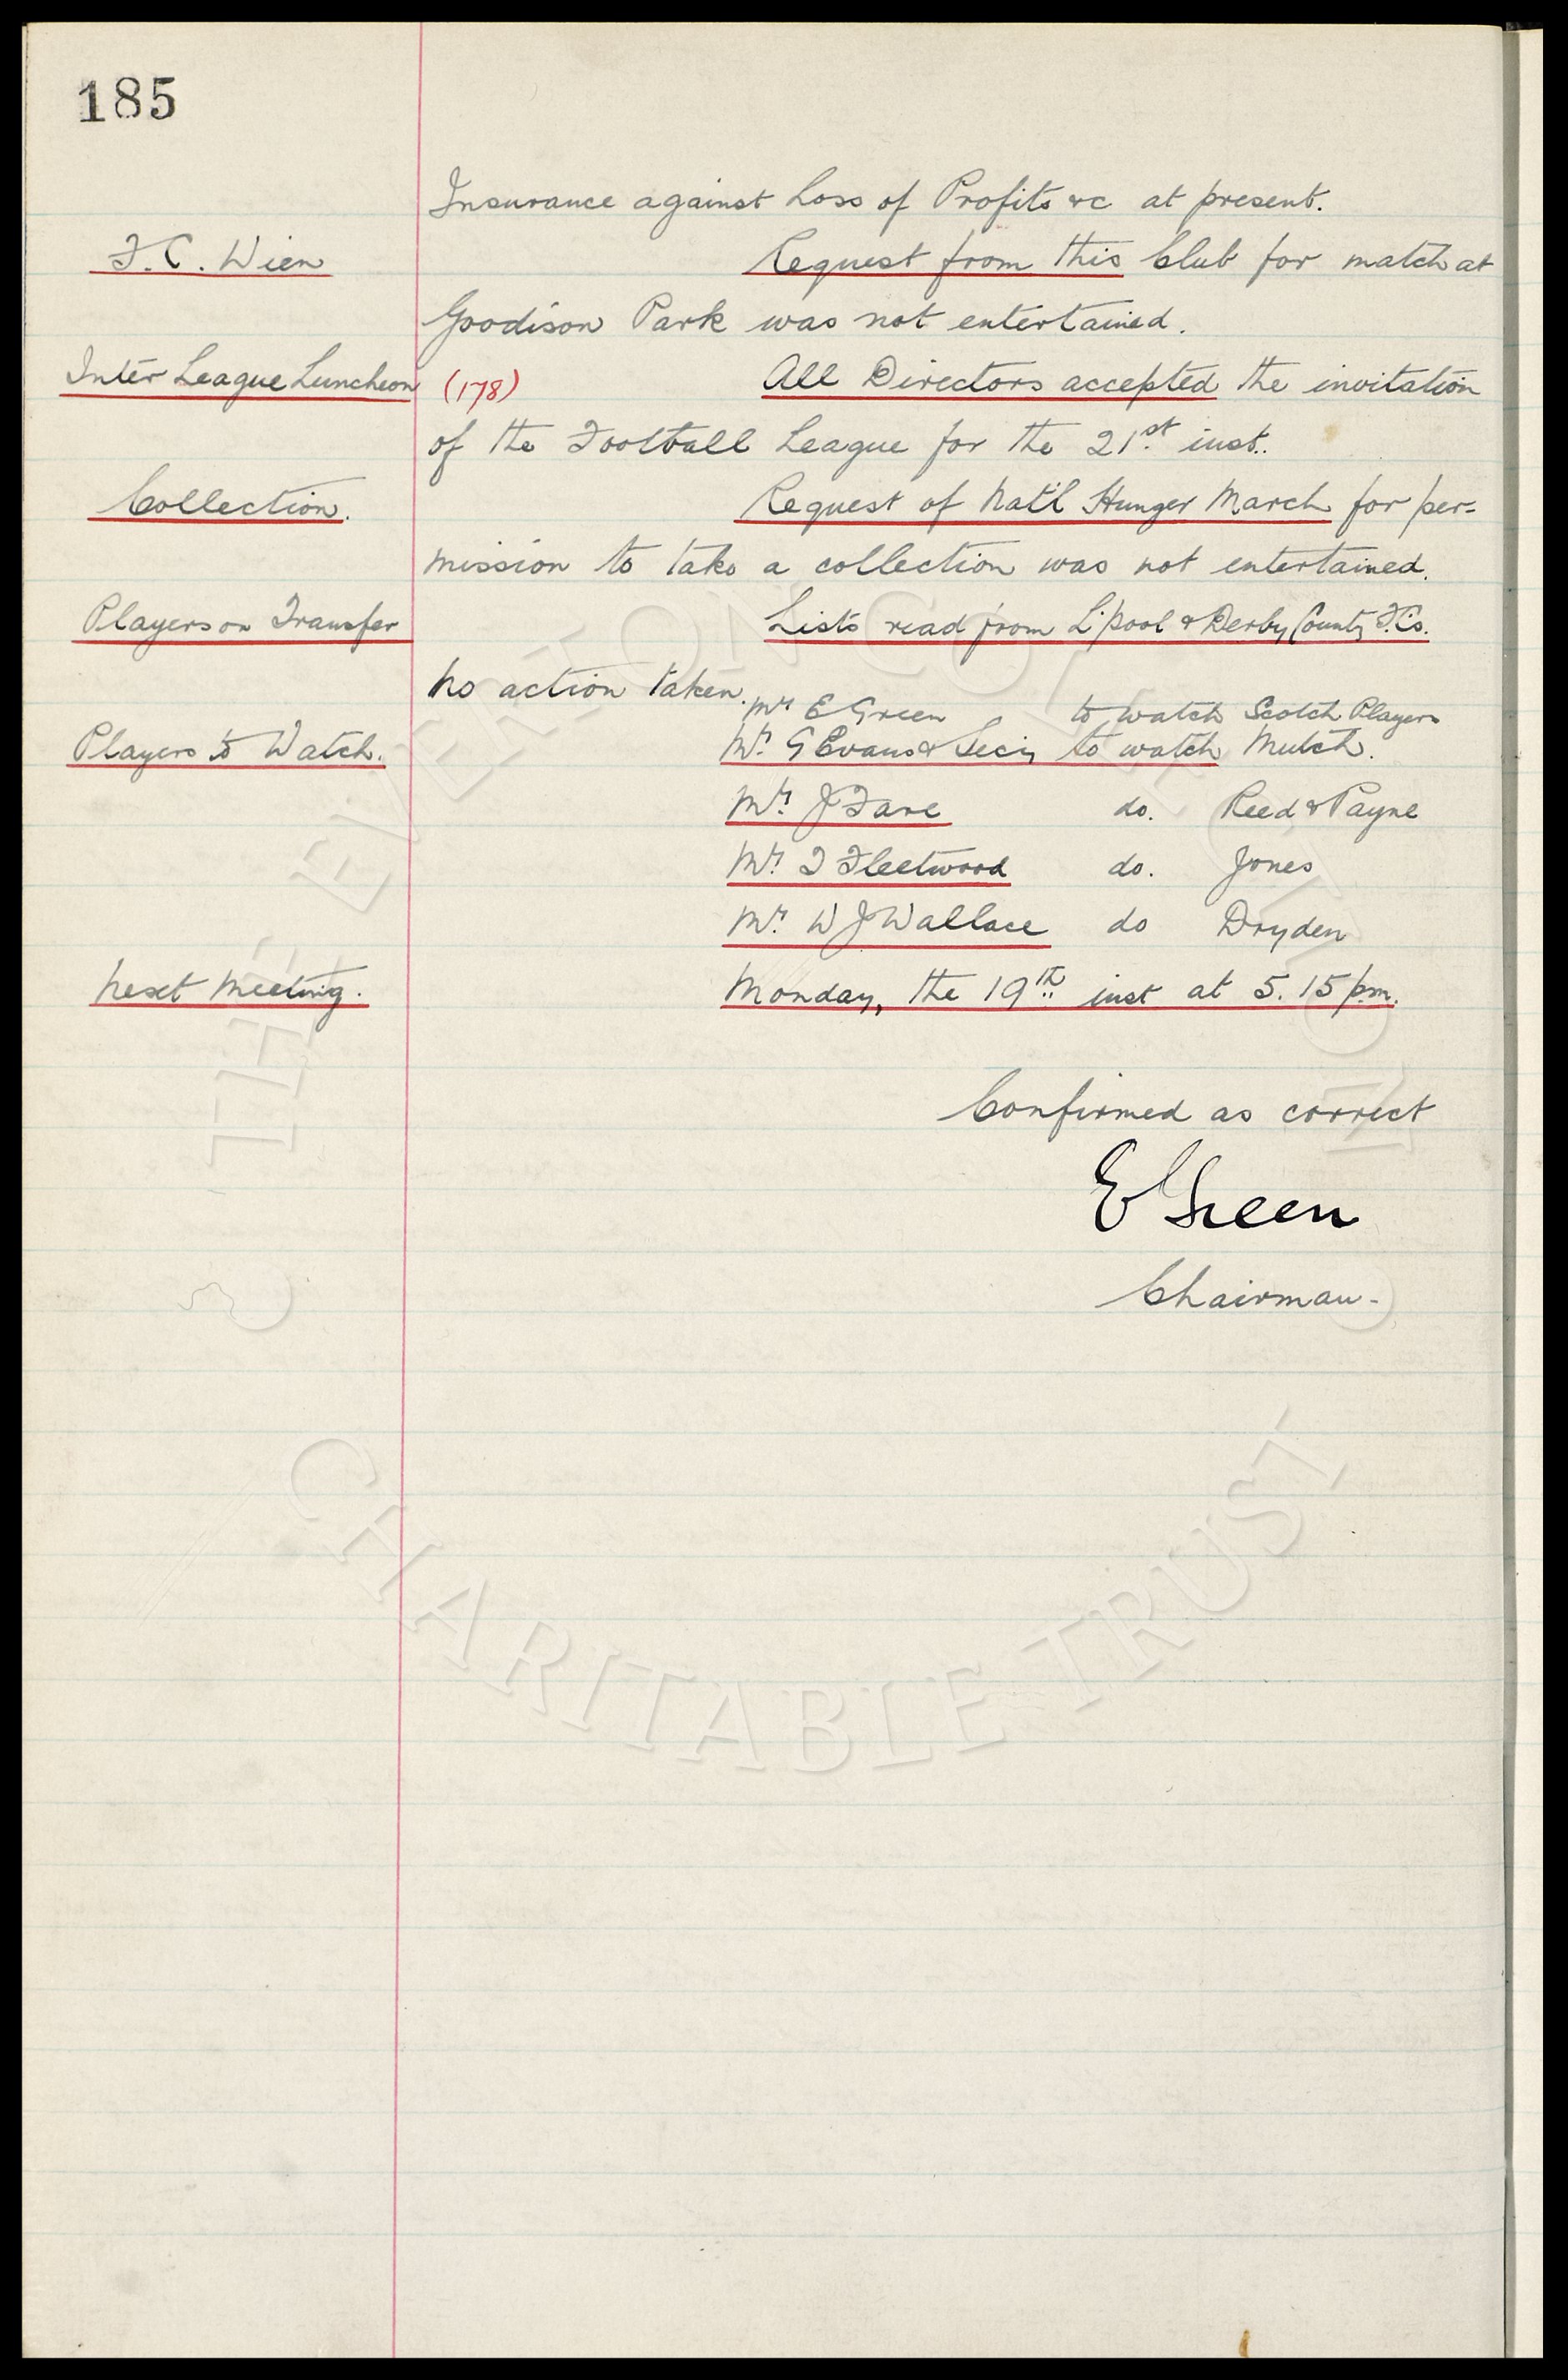 185
Insurance against Loss of Profits &c at present.
F.C. Wien Request from this Club for match at
Goodison Park was not entertained.
Inter League Luncheon (178) All Directors accepted the invitation
of the Football League for the 21st inst.
Collection. Request of Nat'l Hunger March for per-
mission to take a collection was not entertained.
Players on Transfer Lists read from L'pool & Derby County F.C's.
No action taken.
Mr E Green to watch Scotch Players
Players to Watch. Mr. G Evans & Secy to watch Mutch.
Mr. J Fare do. Reed & Payne
Mr. T Fleetwood do. Jones
Mr. W J Wallace do Dryden
Next Meeting. Monday, the 19th inst at 5.15 p.m.
Confirmed as correct
E Green
Chairman-
THE EVERTON COLLECTION
CHARITABLE TRUST